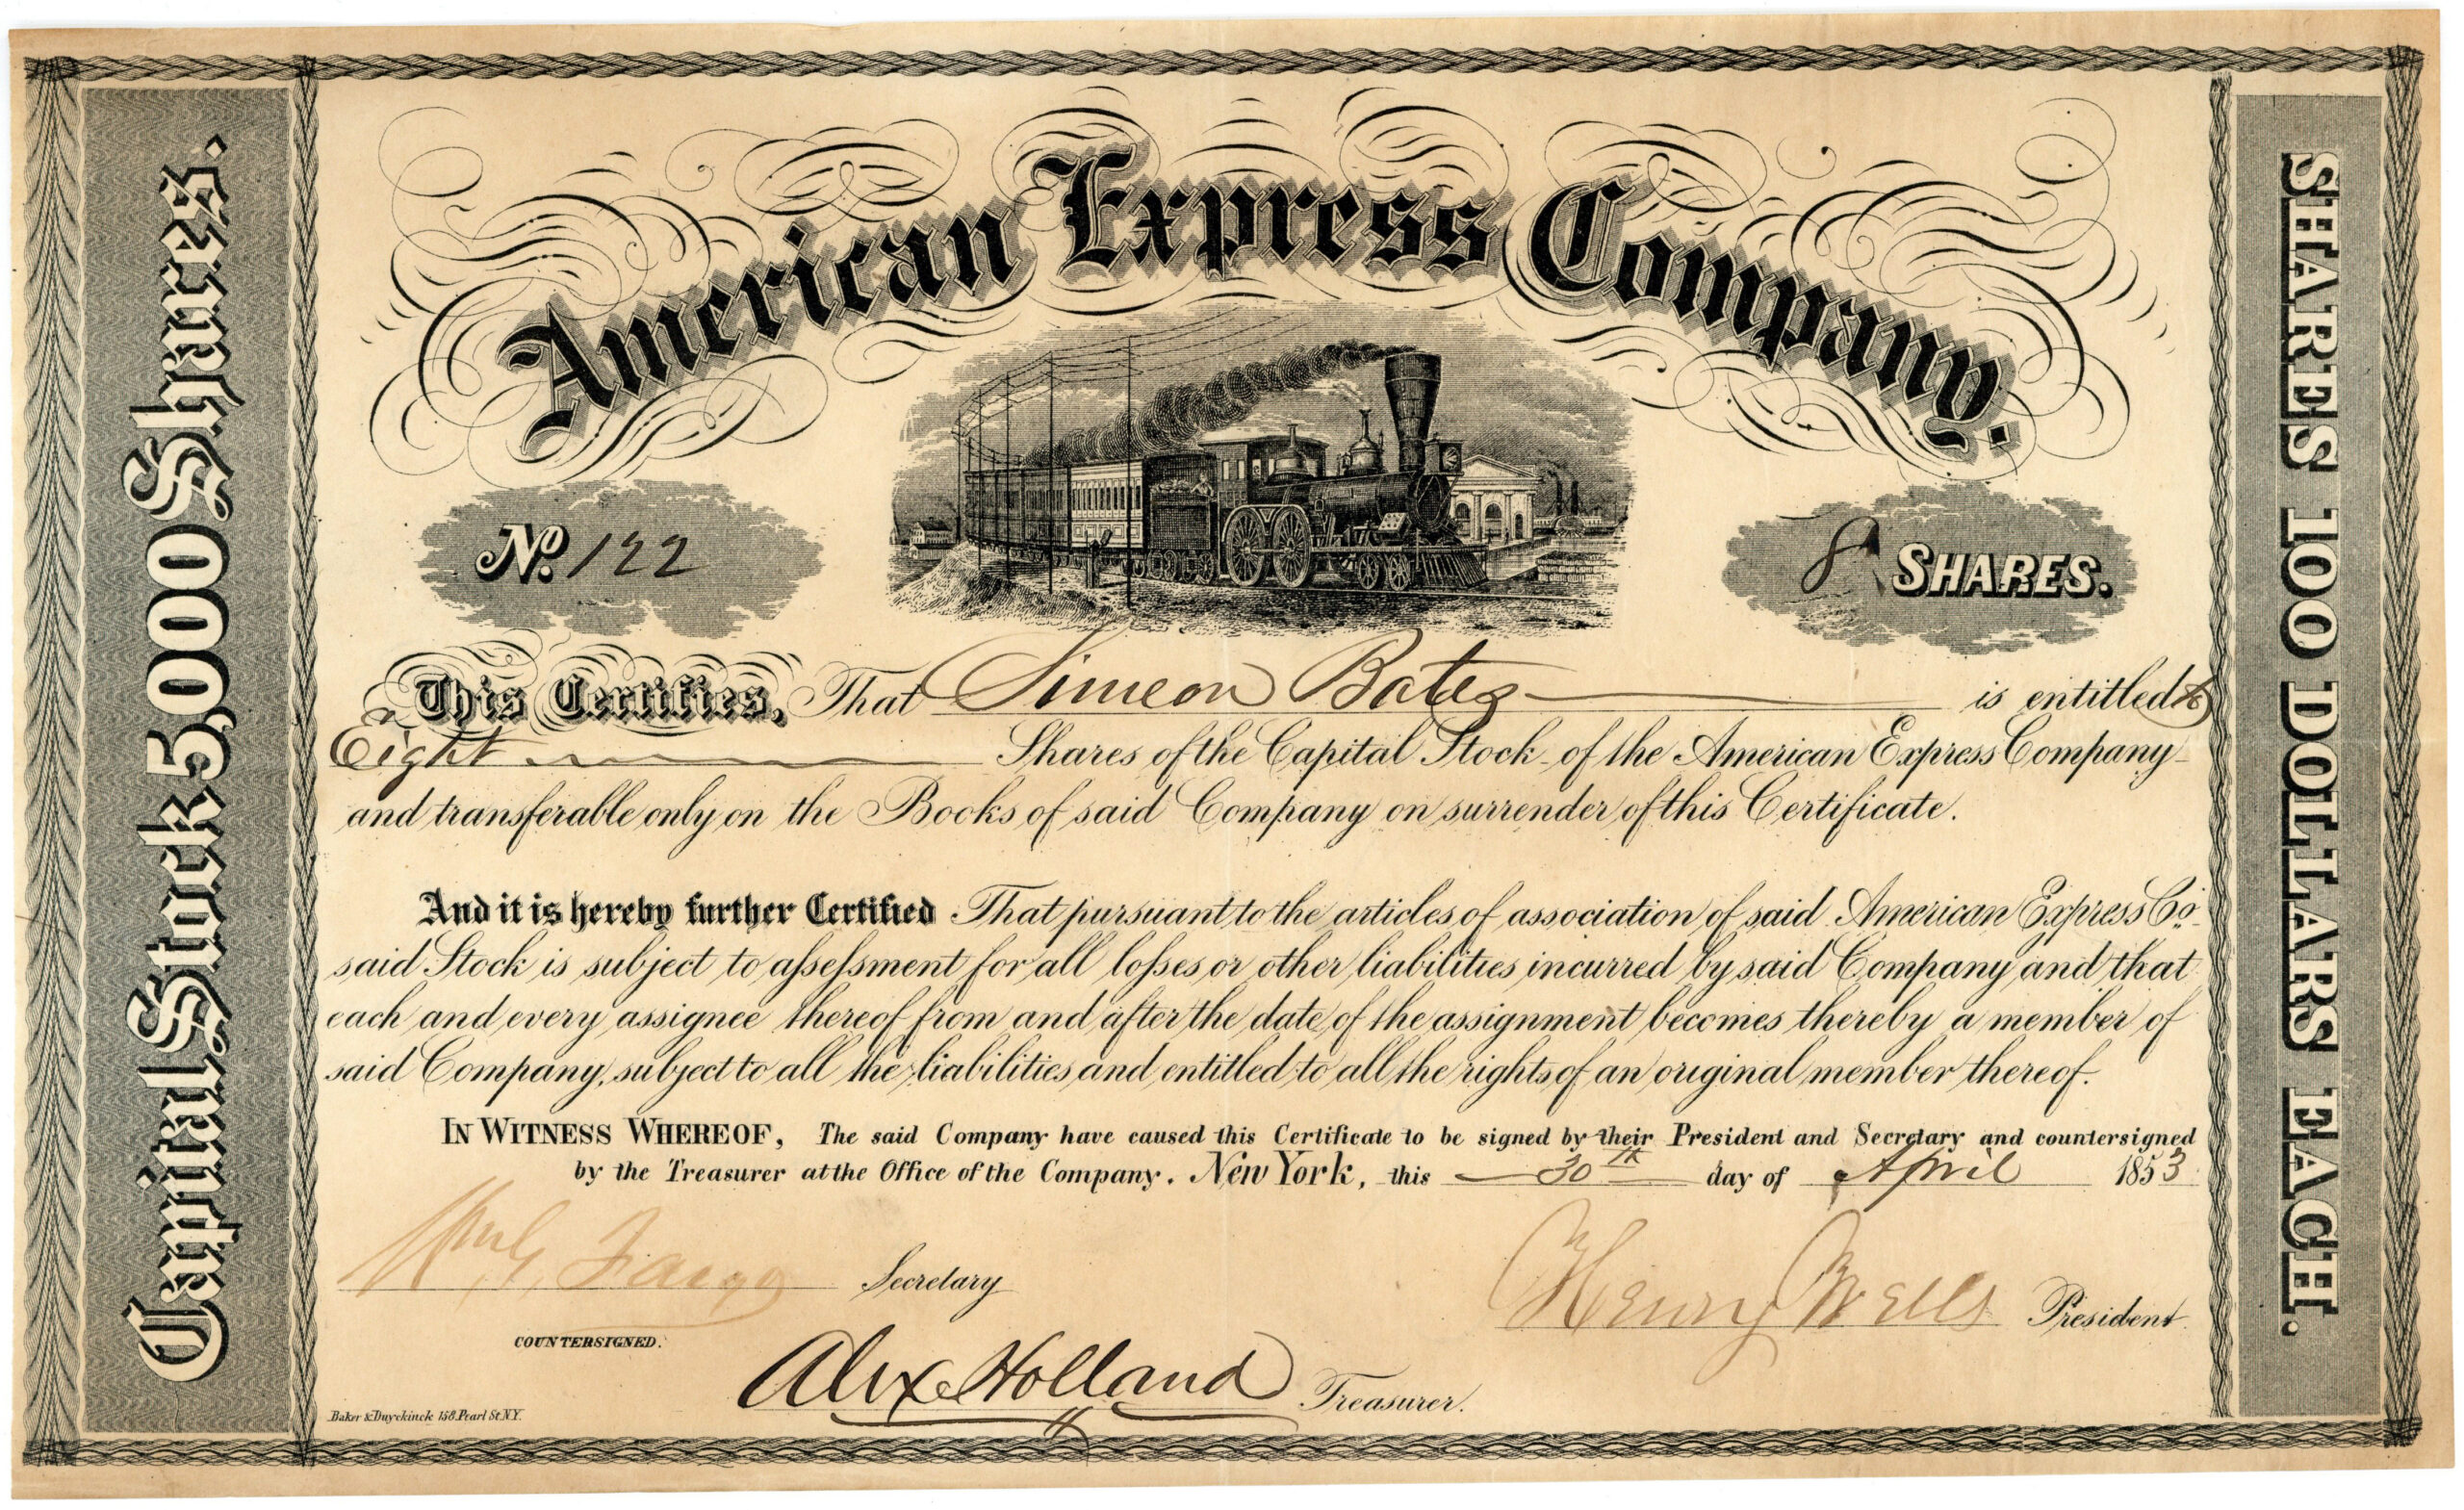 American Express Company.
Capital Stock 5,000 Shares.
SHARES 100 DOLLARS EACH.
No. 122
8 SHARES.
This Certifies, That Simeon Bates is entitled to
Eight Shares of the Capital Stock of the American Express Company
and transferable only on the Books of said Company on surrender of this Certificate.
And it is hereby further Certified That pursuant to the articles of association of said American Express Co.
said Stock is subject to assessment for all losses or other liabilities incurred by said Company and that
each and every assignee thereof from and after the date of the assignment becomes thereby a member of
said Company, subject to all the liabilities and entitled to all the rights of an original member thereof.
IN WITNESS WHEREOF, The said Company have caused this Certificate to be signed by their President and Secretary and countersigned
by the Treasurer at the Office of the Company. New York, this 30th day of April 1853
Wm G. Fargo Secretary
Henry Wells President.
COUNTERSIGNED.
Alex Holland Treasurer.
Baker & Duyckinck 158 Pearl St. N.Y.